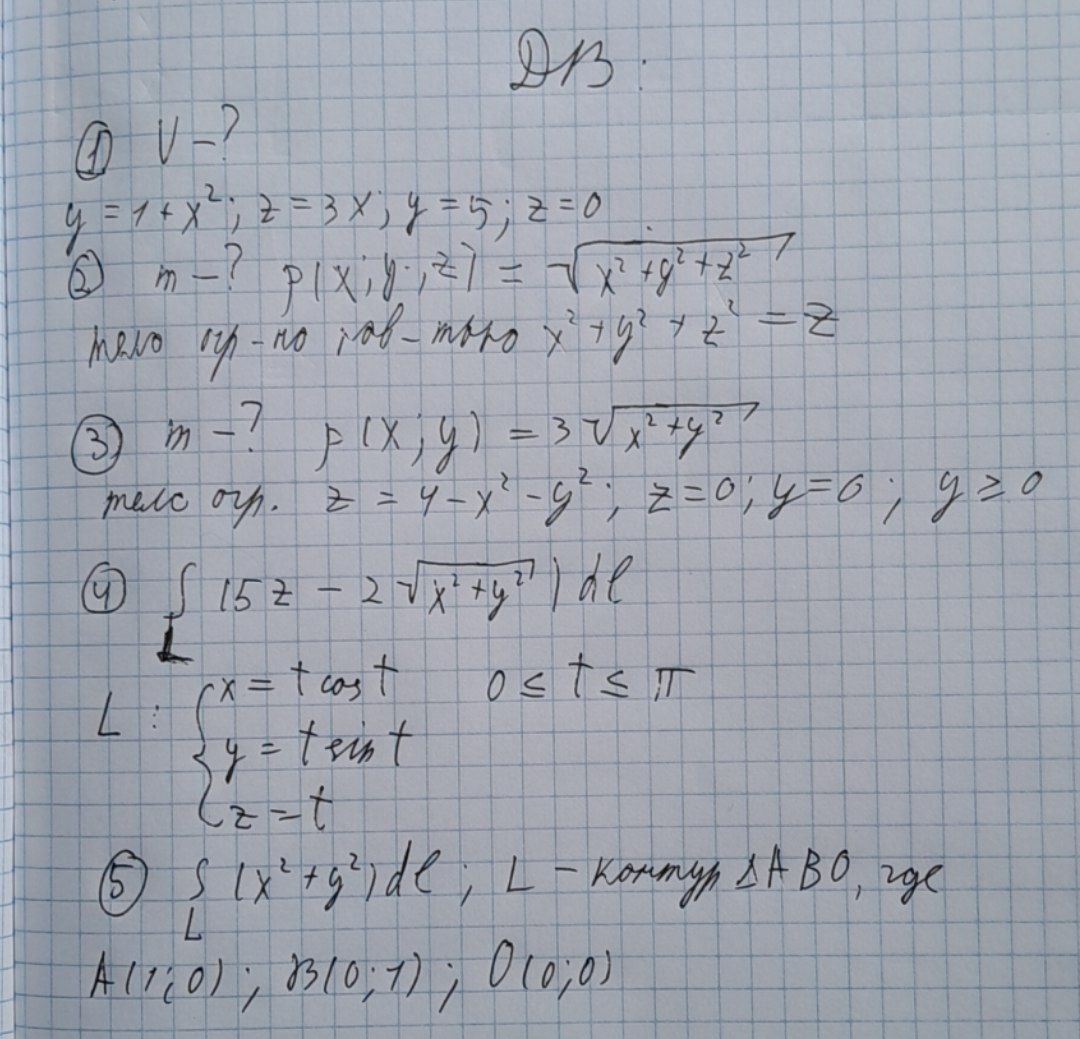 ДЗ.
① V - ?
y = 1 + x²; z = 3x; y = 5; z = 0
② m - ? ρ(x; y; z) = √(x² + y² + z²)
тело огр-но пов-тью x² + y² + z² = z
③ m - ? ρ(x; y) = 3√(x² + y²)
тело огр. z = 4 - x² - y²; z = 0; y = 0; y ≥ 0
④ ∫ (5z - 2√(x² + y²)) dl
L
L: { x = t cos t 0 ≤ t ≤ π
y = t sin t
z = t
⑤ ∫ (x² + y²) dl; L - контур ΔABO, где
L
A(1; 0); B(0; 1); O(0; 0)